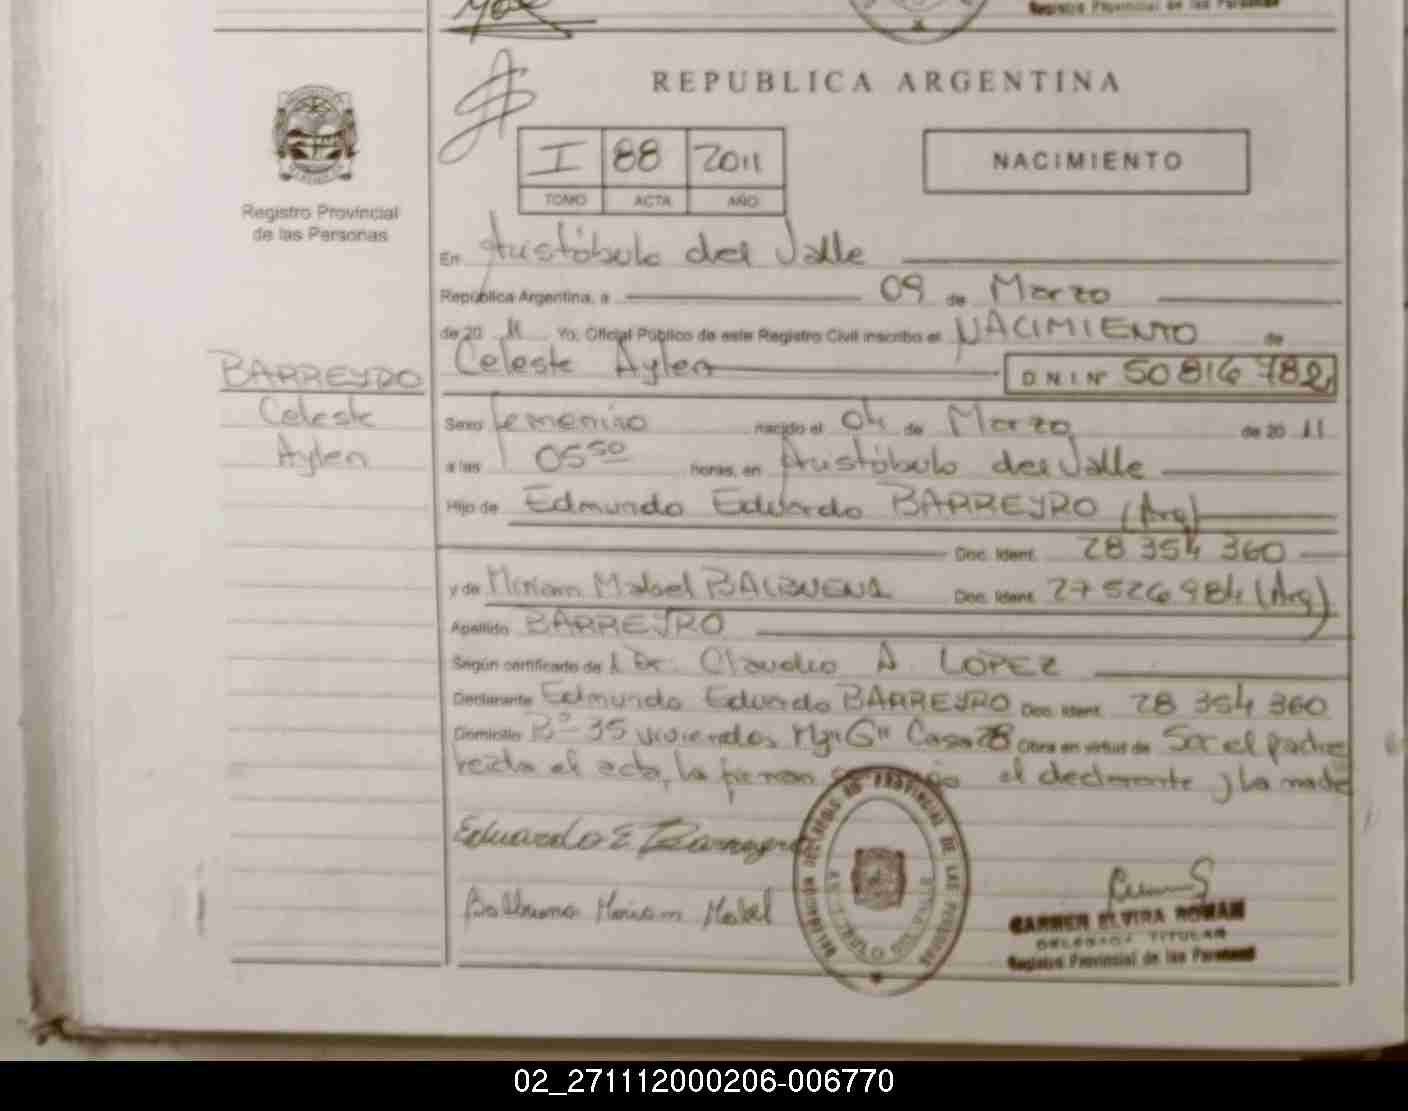 Registro Provincial de las Personas
REPUBLICA ARGENTINA
I 88 2011
TOMO ACTA AÑO
NACIMIENTO
Registro Provincial
de las Personas
En Aristóbulo del Valle
República Argentina, a 09 de Marzo
de 20 11 Yo, Oficial Público de este Registro Civil inscribo el NACIMIENTO de
Celeste Aylen D N I Nº 50 816 782
BARREYRO
Celeste
Aylen
Sexo femenino nacido el 04 de Marzo de 20 11
a las 05 50 horas, en Aristóbulo del Valle
Hijo de Edmundo Eduardo BARREYRO (Arg)
Doc. Ident. 28 354 360
y de Miriam Mabel BALBUENA Doc. Ident. 27 526 984 (Arg)
Apellido BARREYRO
Según certificado de Dr. Claudio A LOPEZ
Declarante Edmundo Eduardo BARREYRO Doc. Ident. 28 354 360
Domicilio Bº 35 viviendas Casa 28 Obra en virtud de Ser el padre
leída el acta, la firman el declarante y la madre
Balbuena Miriam Mabel
DELEGACION DEL REGISTRO PROVINCIAL DE LAS PERSONAS
ARISTOBULO DEL VALLE
CARMEN ELVIRA ROMAN
DELEGADA TITULAR
Registro Provincial de las Personas
02_271112000206-006770